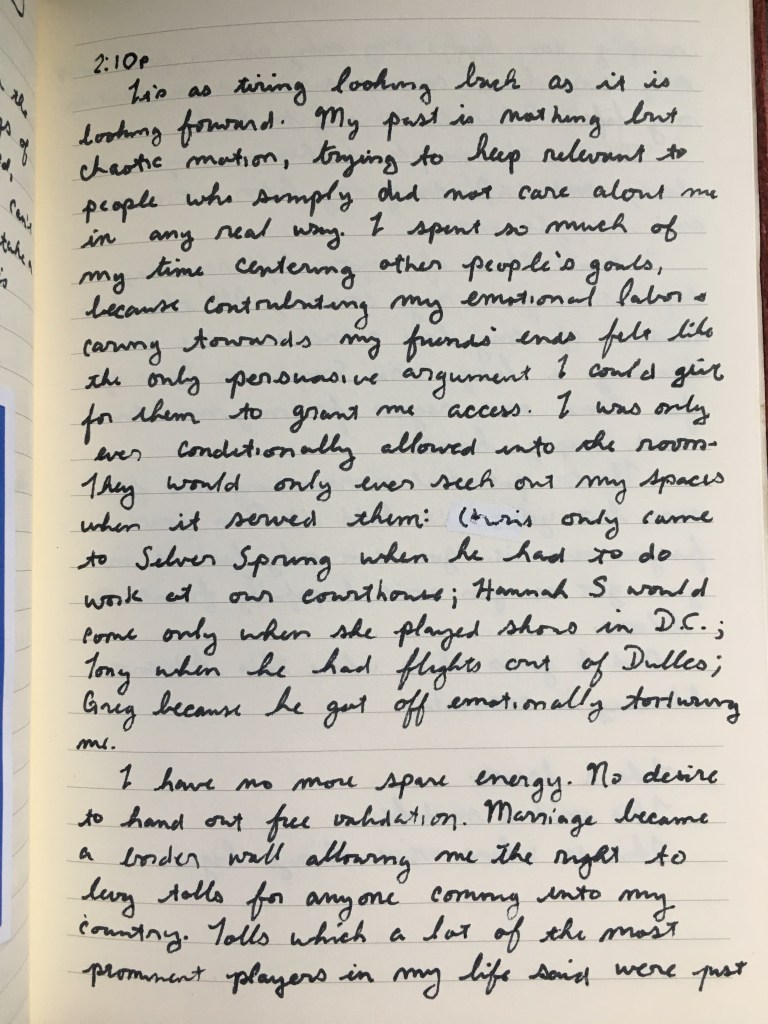 2:10p
It's as tiring looking back as it is
looking forward. My past is nothing but
chaotic motion, trying to keep relevant to
people who simply did not care about me
in any real way. I spent so much of
my time centering other people's goals,
because contributing my emotional labor &
caring towards my friends' ends felt like
the only persuasive argument I could give
for them to grant me access. I was only
ever conditionally allowed into the room-
They would only ever seek out my spaces
when it served them: Chris only came
to Silver Spring when he had to do
work at our courthouse; Hannah S would
come only when she played shows in D.C.;
Tony when he had flights out of Dulles;
Greg because he got off emotionally torturing
me.
I have no more spare energy. No desire
to hand out free validation. Marriage became
a border wall allowing me the right to
levy tolls for anyone coming into my
country. Tolls which a lot of the most
prominent players in my life said were just
the
of
can't